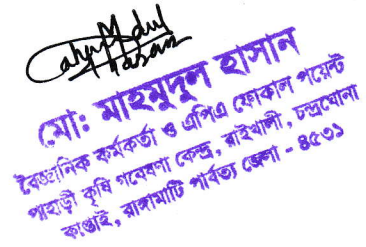 মো: মাহমুদুল হাসান
বৈজ্ঞানিক কর্মকর্তা ও এপিএ ফোকাল পয়েন্ট
পাহাড়ী কৃষি গবেষণা কেন্দ্র, রাইখালী, চন্দ্রঘোনা
কাপ্তাই, রাঙ্গামাটি পার্বত্য জেলা - ৪৫৩১